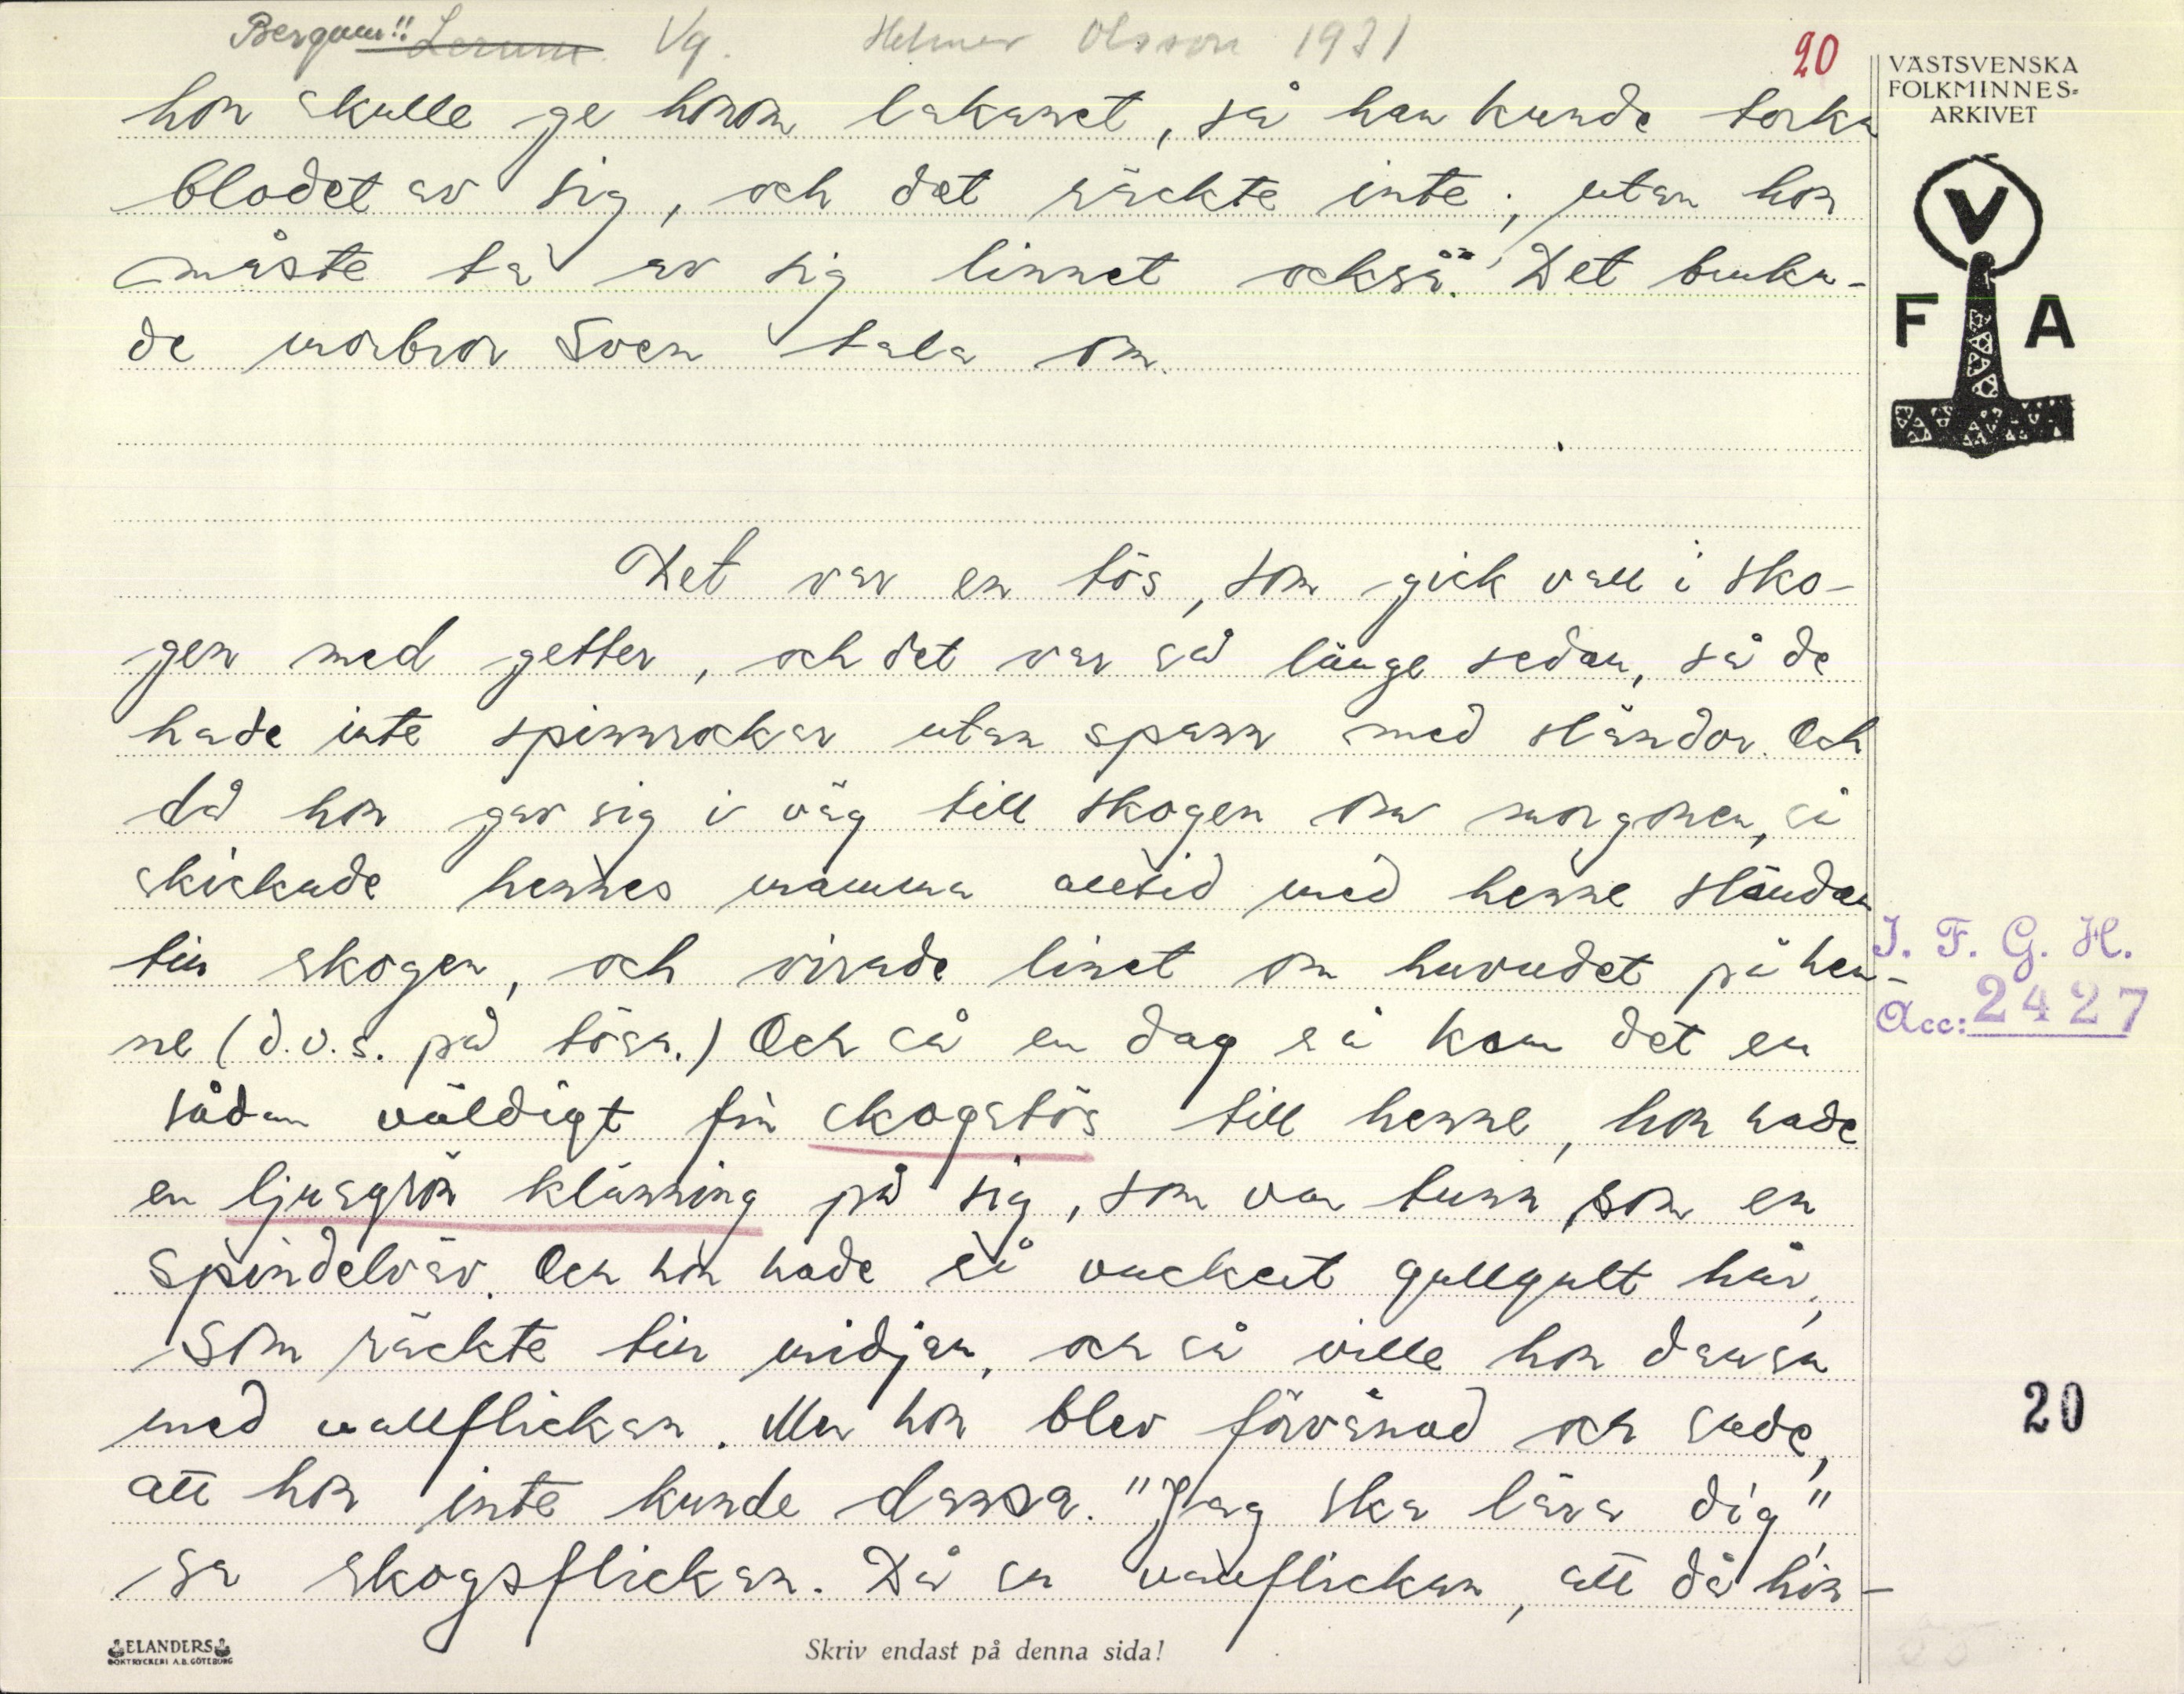 Bergum!! Lerum. Vg. Helmer Olsson 1931
20
VÄSTSVENSKA
FOLKMINNES-
ARKIVET
V
F A
hon skulle ge honom lakanet, så han kunde torka
blodet av sig, och det räckte inte, utan hon
måste ta av sig linnet också." Det bruka-
de morbror Sven tala om.
Det var en tös, som gick vall i sko-
gen med getter, och det var så länge sedan, så de
hade inte spinnrockar utan spann med sländor. Och
då hon gav sig i väg till skogen om morgonen, så
skickade hennes mamma alltid med henne sländan
till skogen, och virade linet om huvudet på hen-
ne (d.v.s. på tösa.) Och så en dag så kom det en
sådan väldigt fin skogstös till henne, hon hade
en ljusgrön klänning på sig, som var tunn som en
spindelväv. Och hon hade så vackert gullgult hår,
som räckte till midjan, och så ville hon dansa
med vallflickan. Men hon blev förvånad och sade,
att hon inte kunde dansa. "Jag ska lära dig",
sa skogsflickan. Då sa vallflickan, att då hin-
I. F. G. H.
Acc: 2427
20
ELANDERS
BOKTRYCKERI A.B. GÖTEBORG
Skriv endast på denna sida!